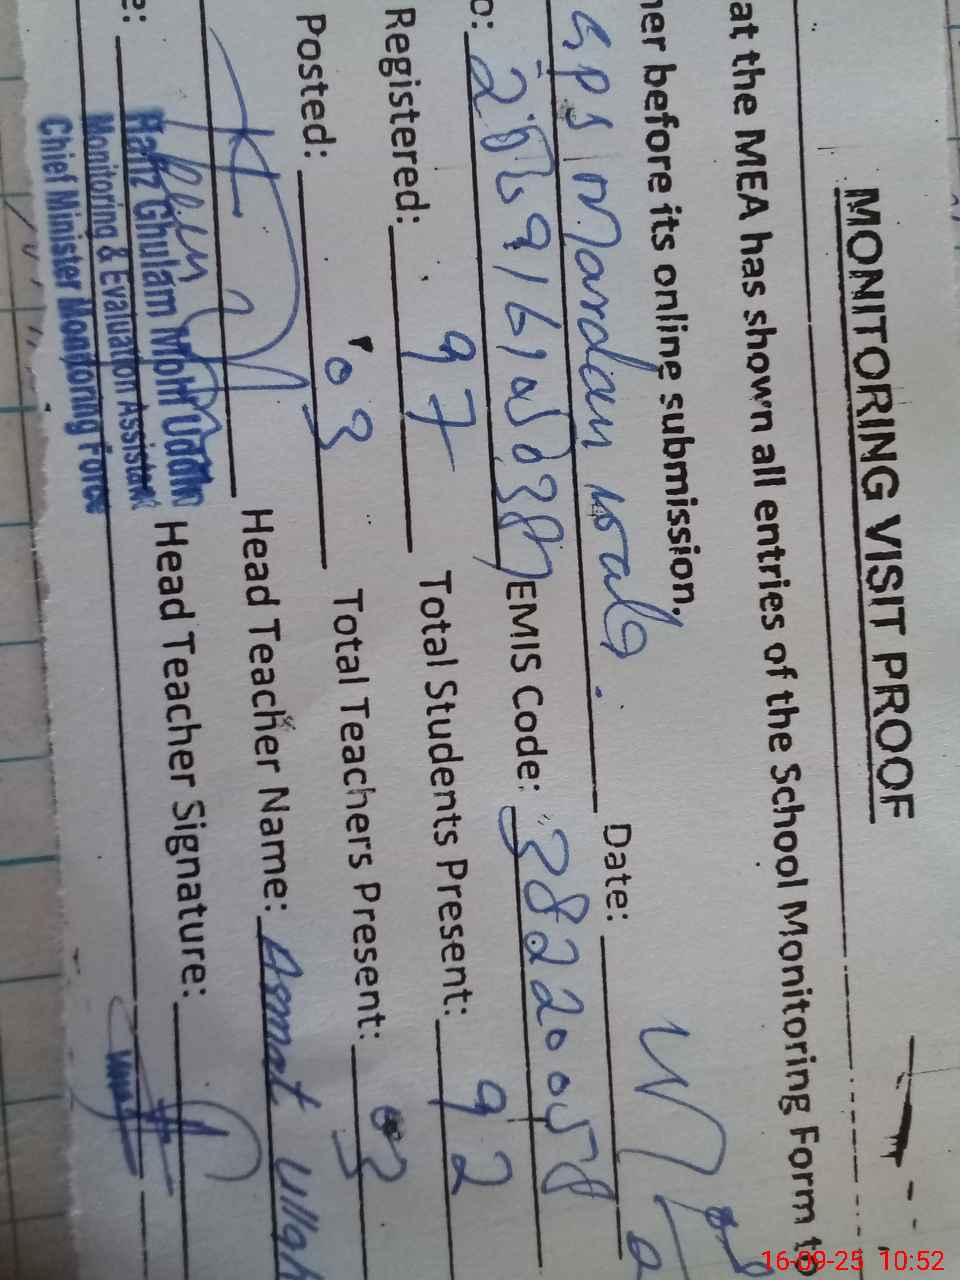 MONITORING VISIT PROOF
at the MEA has shown all entries of the School Monitoring Form to
her before its online submission.
GPS Mardan wala. Date:
EMIS Code: 38220058
Registered: 97 Total Students Present: 92
Posted: 03 Total Teachers Present: 03
Head Teacher Name: Asmat Ullah
Head Teacher Signature:
Hafiz Ghulam Mohi Uddin
Monitoring & Evaluation Assistant
Chief Minister Monitoring Force
16-09-25 10:52